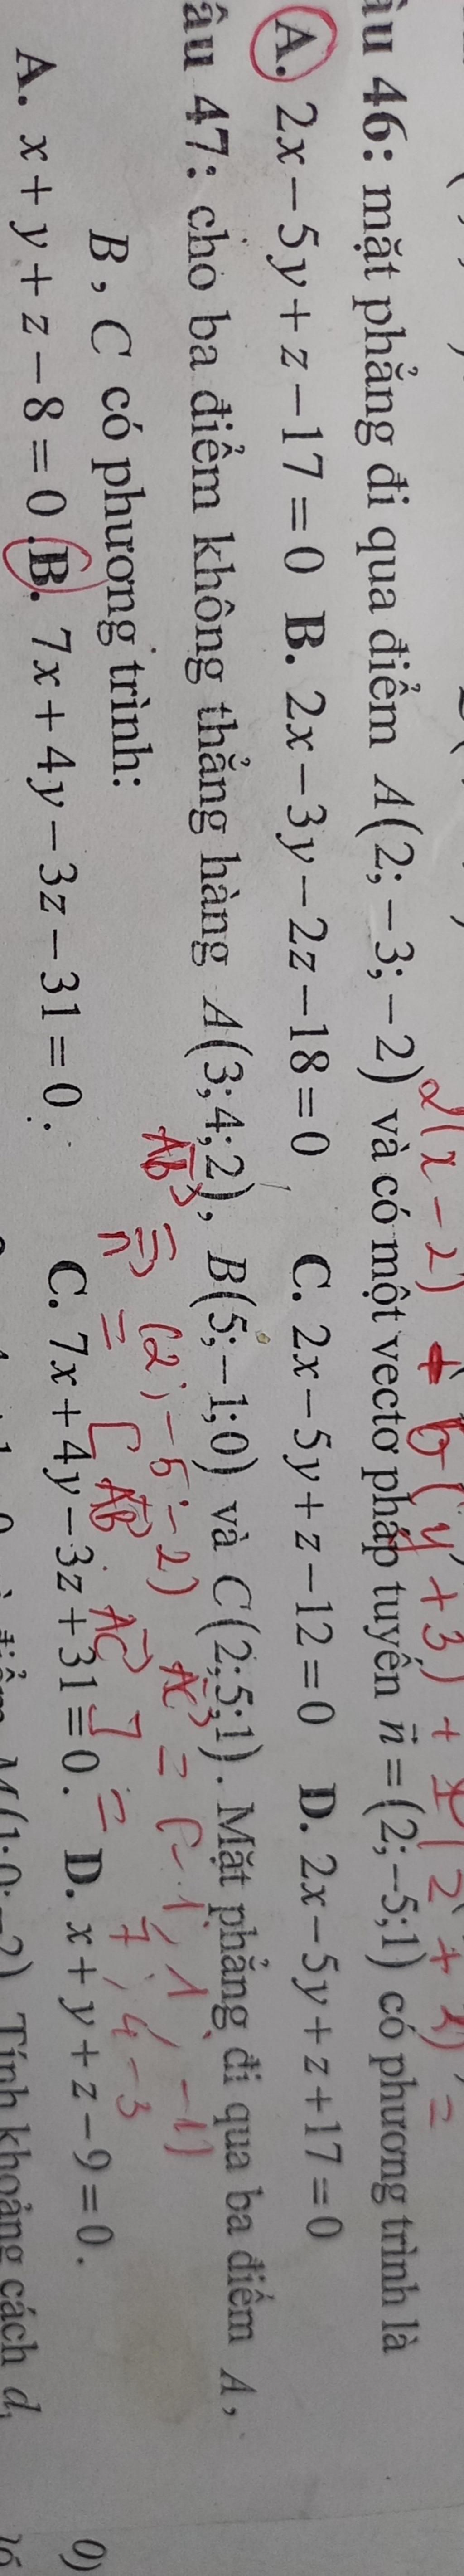 2(x-2) + 6(y+3) + 1(z+2) =
âu 46: mặt phẳng đi qua điểm A(2;-3;-2) và có một vectơ pháp tuyến n⃗=(2;-5;1) có phương trình là
A. 2x-5y+z-17=0 B. 2x-3y-2z-18=0 C. 2x-5y+z-12=0 D. 2x-5y+z+17=0
âu 47: cho ba điểm không thẳng hàng A(3;4;2), B(5;-1;0) và C(2;5;1). Mặt phẳng đi qua ba điểm A,
AB = (2;-5;-2) AC = (-1, 1, -1)
B, C có phương trình:
n = [AB AC] = 7, 4, -3
A. x+y+z-8=0. B. 7x+4y-3z-31=0. C. 7x+4y-3z+31=0. D. x+y+z-9=0.
điểm M(1;0;-2). Tính khoảng cách d